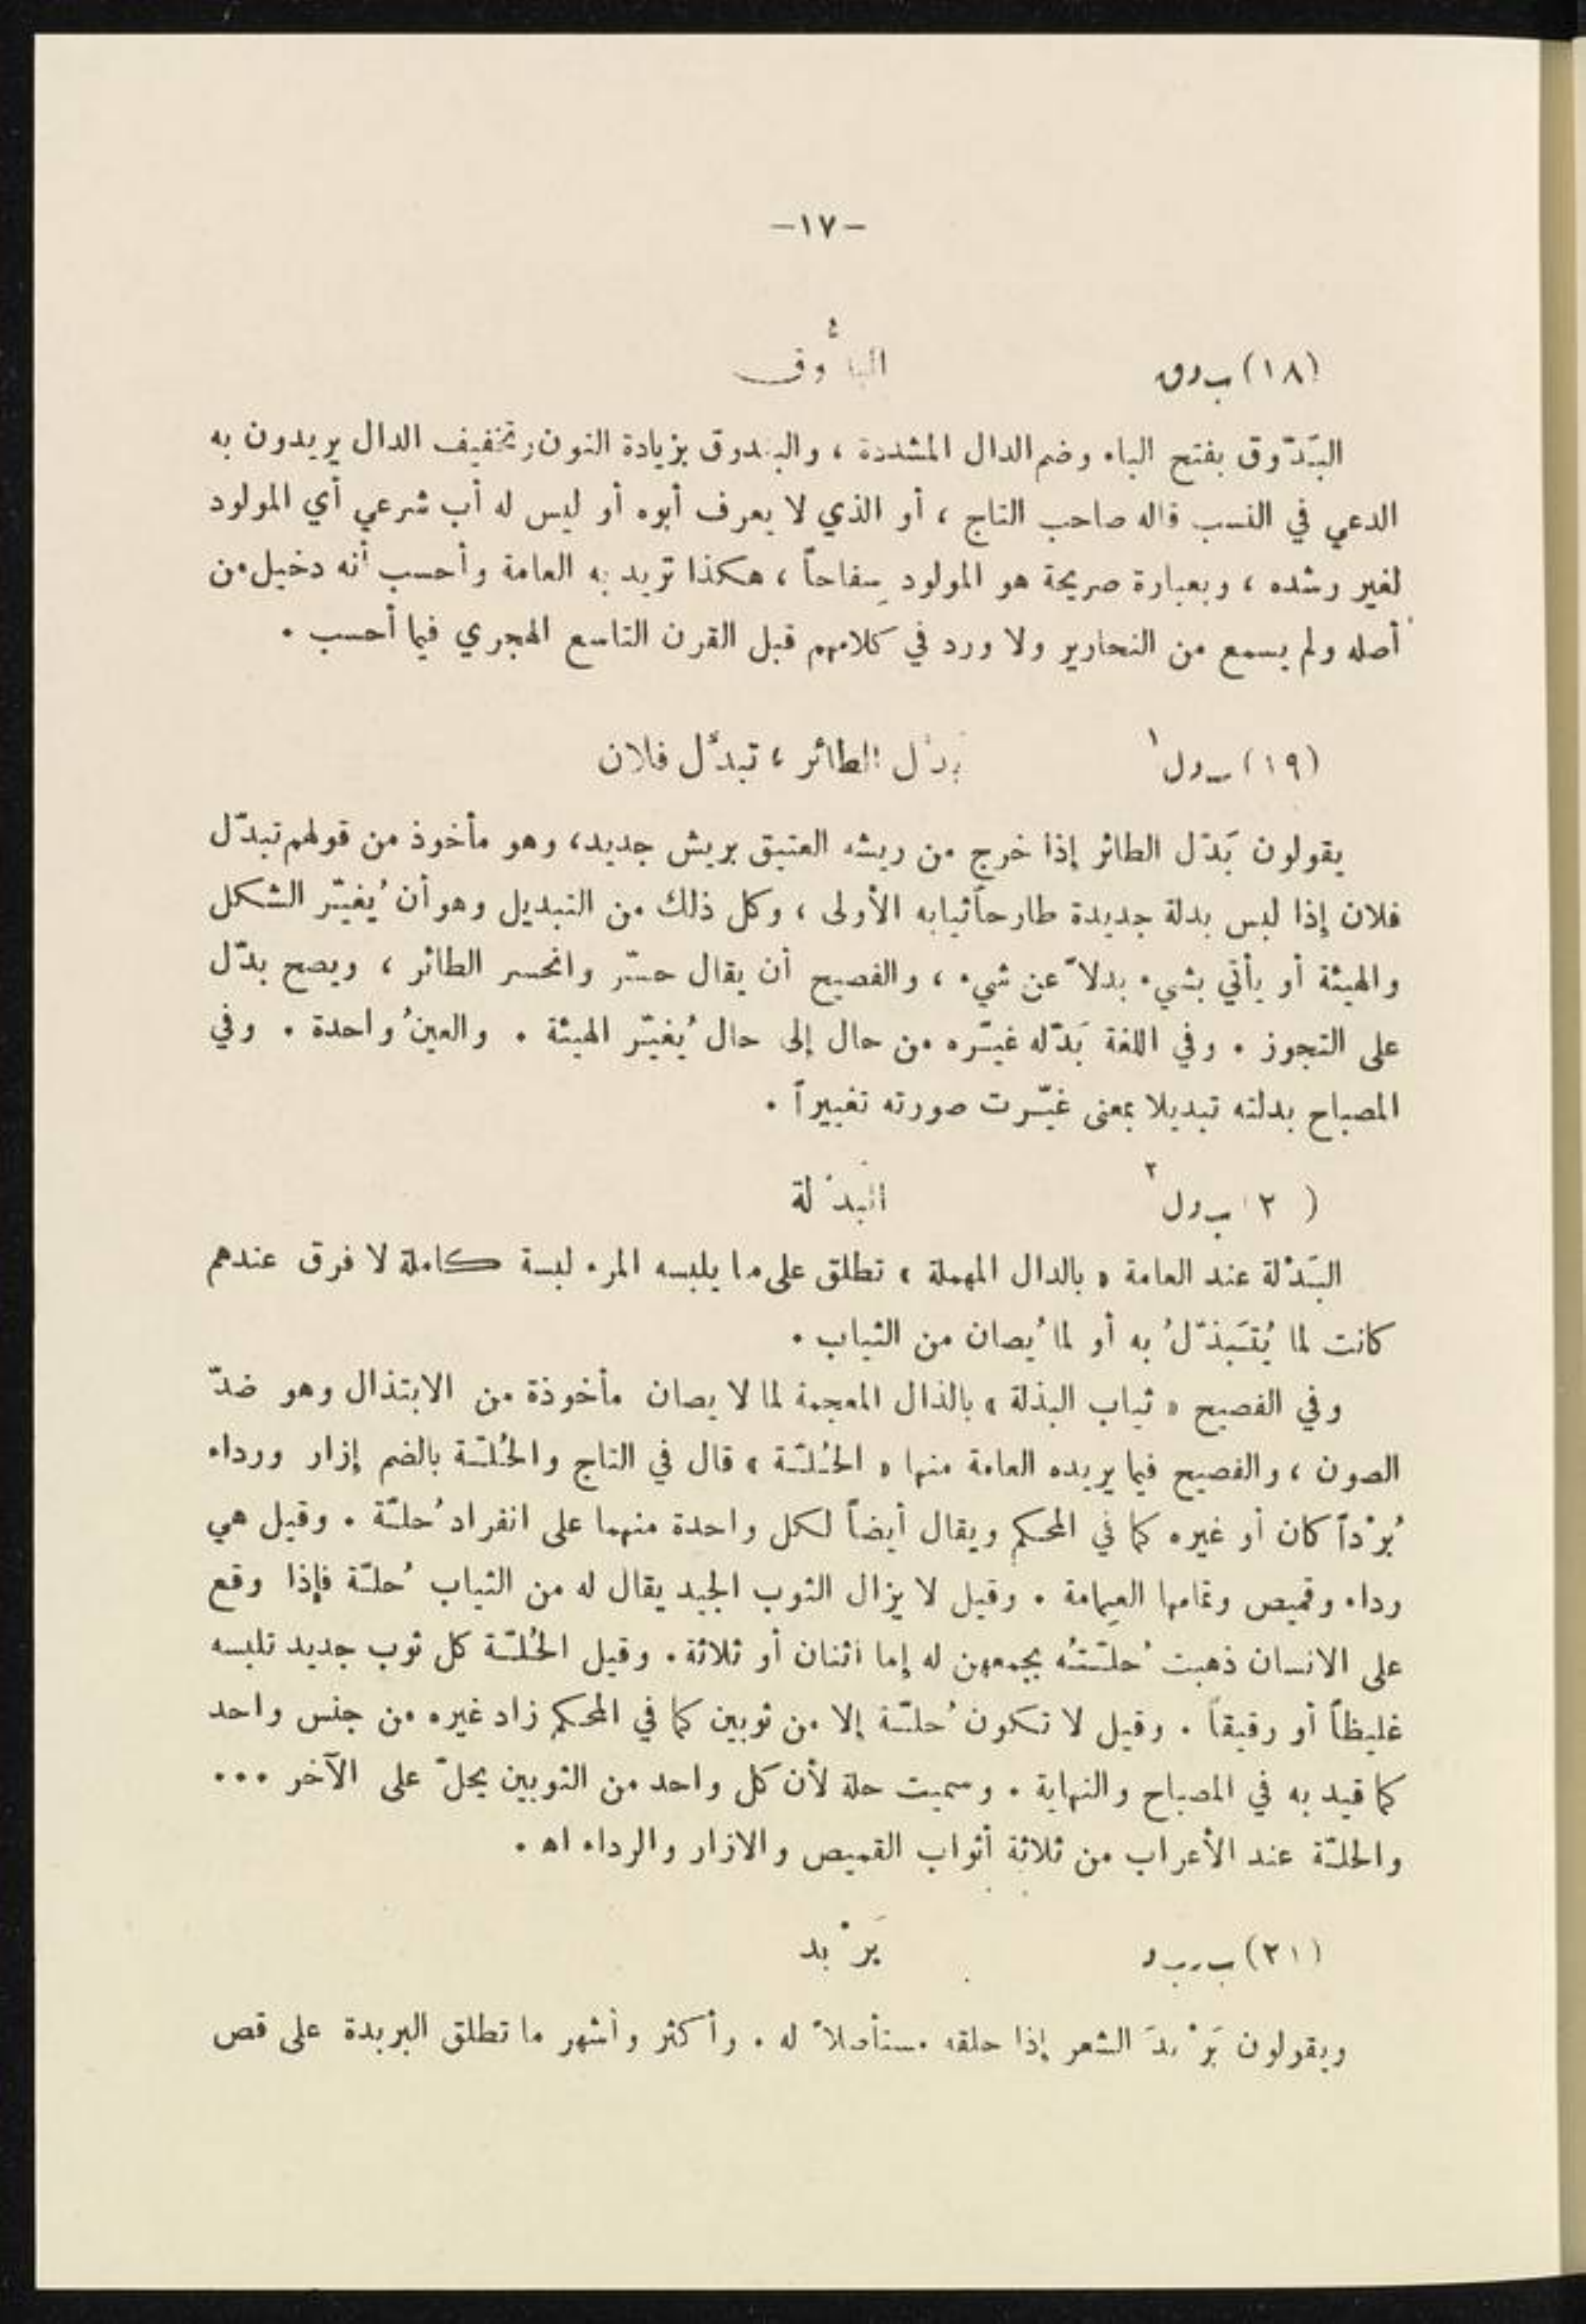 –١٧–
(١٨) ب د ق البدّوق
البَدّوق بفتح الباء وضم الدال المشددة ، والبندوق بزيادة النون وتخفيف الدال يريدون به
الدعي في النسب قاله صاحب التاج ، أو الذي لا يعرف أبوه أو ليس له أب شرعي أي المولود
لغير رشده ، وبعبارة صريحة هو المولود سِفاحاً ، هكذا تريد به العامة وأحسب أنه دخيل من
أصله ولم يسمع من النحارير ولا ورد في كلامهم قبل القرن التاسع الهجري فيما أحسب .
(١٩) ب د ل ١ بدَّل الطائر ، تبدَّل فلان
يقولون بَدّل الطائر إذا خرج من ريشه العتيق بريش جديد، وهو مأخوذ من قولهم تبدّل
فلان إذا لبس بدلة جديدة طارحاً ثيابه الأولى ، وكل ذلك من التبديل وهو أن يُغيّر الشكل
والهيئة أو يأتي بشيء بدلاً عن شيء ، والفصيح أن يقال حسّر وانحسر الطائر ، ويصح بدّل
على التجوز . وفي اللغة بَدّله غيّره من حال إلى حال يُغيّر الهيئة . والعينُ واحدة . وفي
المصباح بدلته تبديلا بمعنى غيّرت صورته تغييراً .
( ٢ ) ب د ل ٢ البَدْلة
البَدْلة عند العامة « بالدال المهملة » تطلق على ما يلبسه المرء لبسة كاملة لا فرق عندهم
كانت لما يُتَبذّلُ به أو لما يُصان من الثياب .
وفي الفصيح « ثياب البذلة » بالذال المعجمة لما لا يصان مأخوذة من الابتذال وهو ضدّ
الصون ، والفصيح فيما يريده العامة منها « الحُلّة » قال في التاج والحُلّة بالضم إزار ورداء
بُرْداً كان أو غيره كما في المحكم ويقال أيضاً لكل واحدة منهما على انفراد حُلّة . وقيل هي
رداء وقميص وتمامها العِمامة . وقيل لا يزال الثوب الجيد يقال له من الثياب حُلّة فإذا وقع
على الانسان ذهبت حُلّتُه يجمعهن له إما اثنان أو ثلاثة . وقيل الحُلّة كل ثوب جديد تلبسه
غليظاً أو رقيقاً . وقيل لا تكون حُلّة إلا من ثوبين كما في المحكم زاد غيره من جنس واحد
كما قيد به في المصباح والنهاية . وسميت حلة لأن كل واحد من الثوبين يحلّ على الآخر ...
والحلّة عند الأعراب من ثلاثة أثواب القميص والازار والرداء اه .
(٢١) ب ر ب د بَرْبد
ويقولون بَرْبدَ الشعر إذا حلقه مستأصلاً له . وأكثر وأشهر ما تطلق البربدة على قص